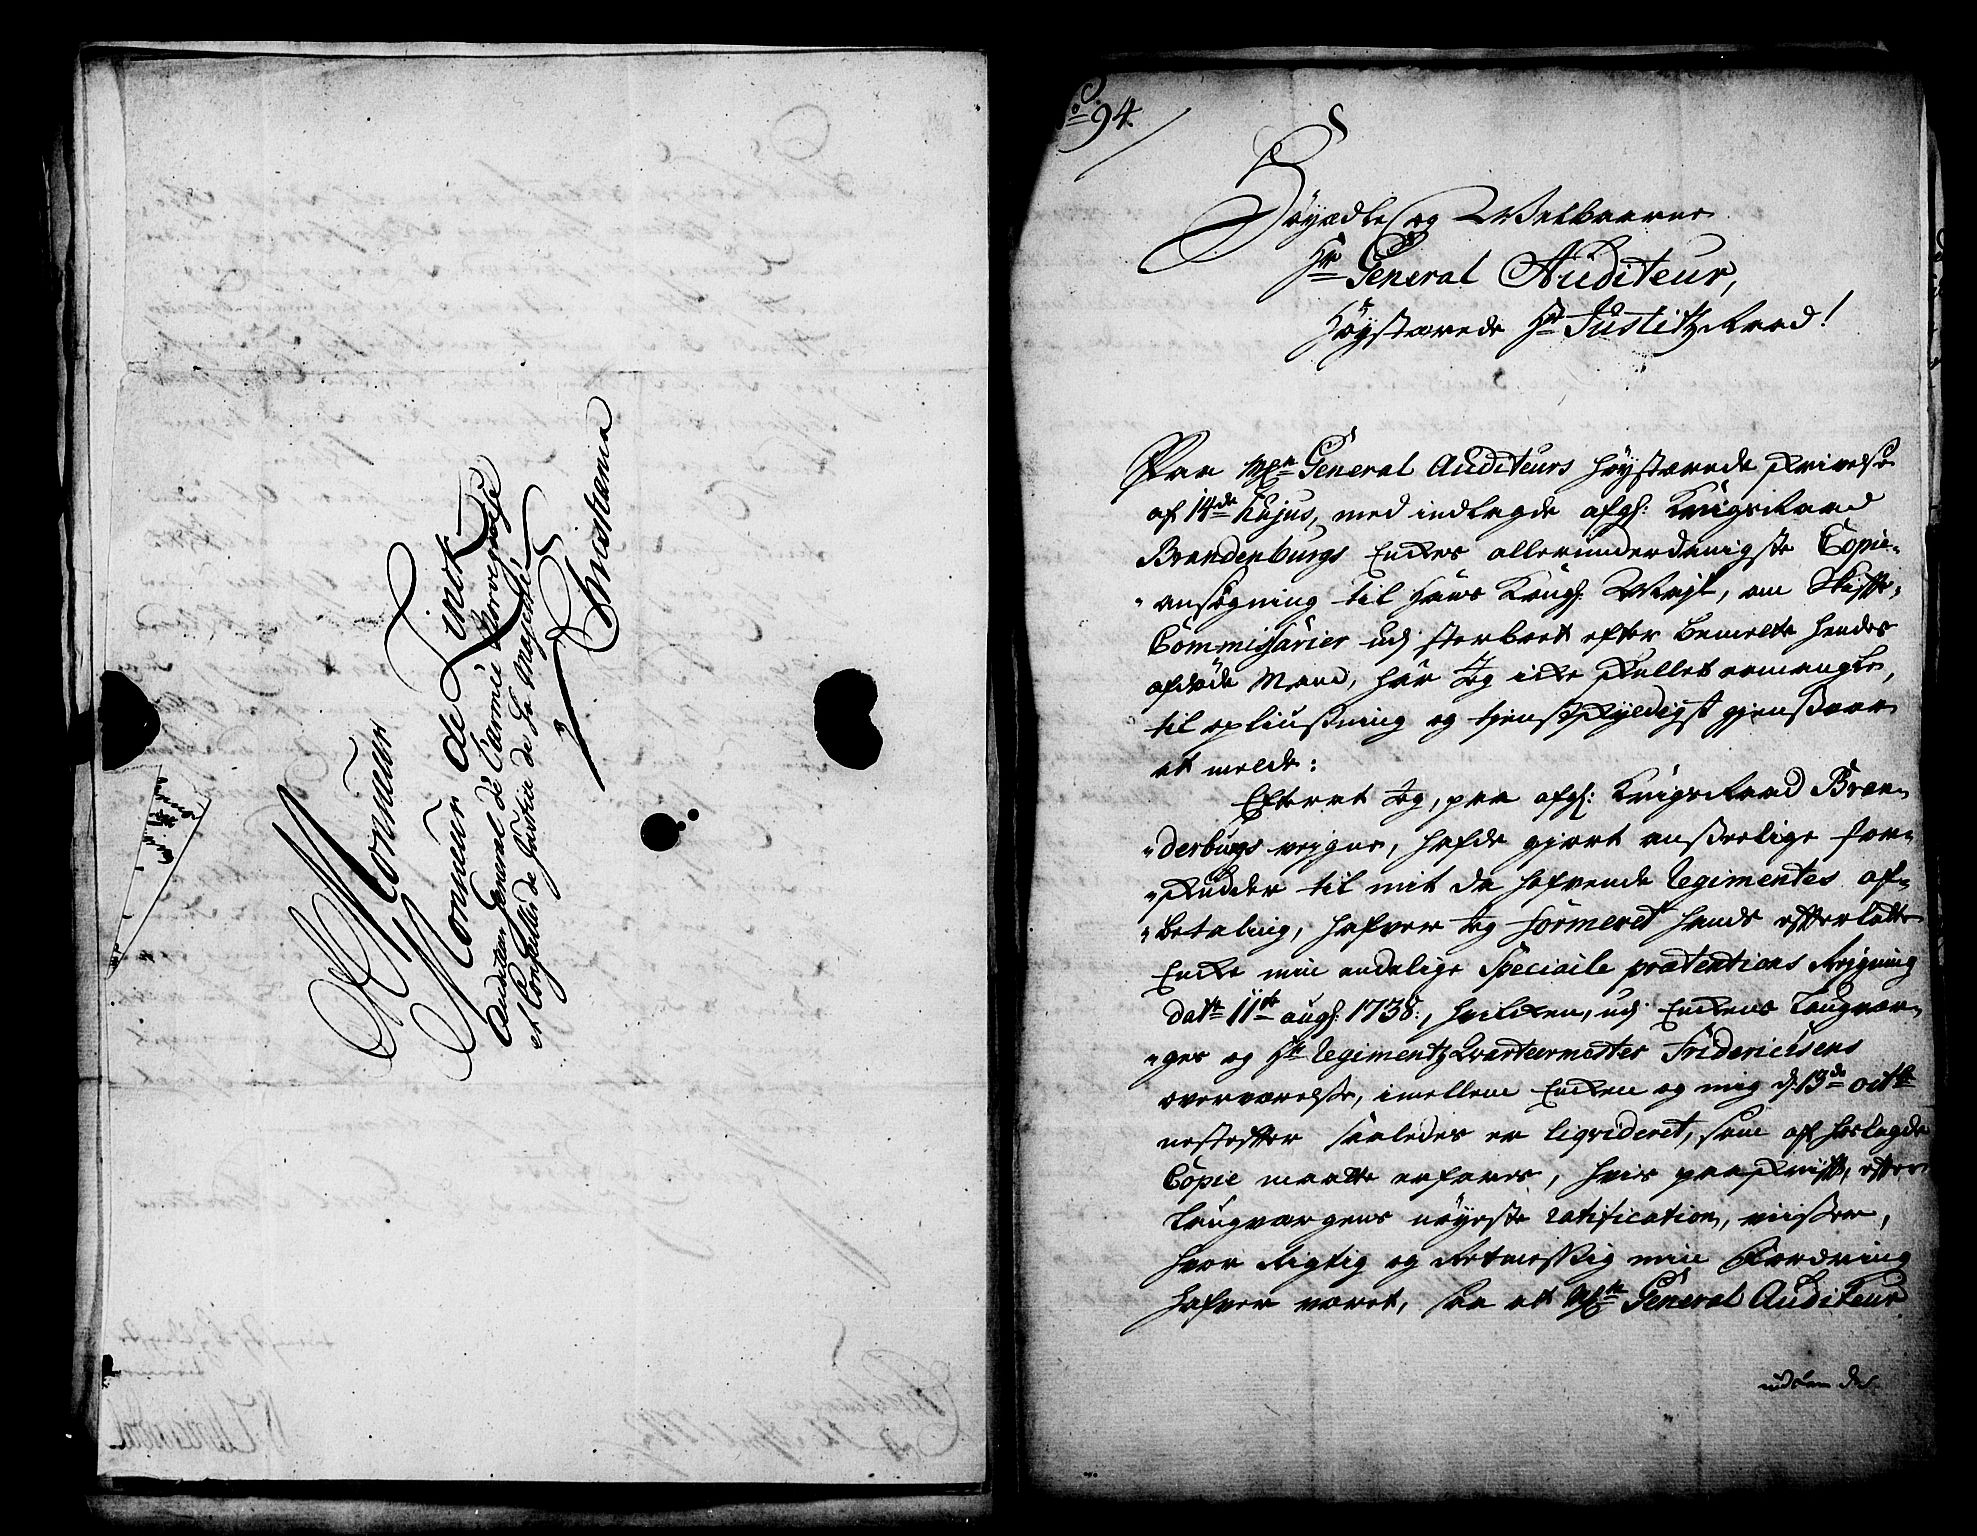 Monsieur
Monsieur de Linck
Auditeur General de L'armée Norvegoise
et Conseiller de Justice de Sa Majesté
Christiania
No 94.
Høyædle og Welbaarne
Hr General Auditeur,
Høystærede Hr Justitz Raad!
Paa Hr General Auditeurs høystærede skrivelse
af 14de hujus, med indlagde afg: Krigs Raad
Brandenburgs Enckes allerunderdanigste Copie-
ansøgning til Hans Kongl: Mayt, om Skifte-
Commissarier udj sterboet efter bemelte hendes
afdøde Mand, har Jeg icke skullet ermangle,
til opliusning og tienstskyldigst giensvar
at melde:
Efterat Jeg, paa afg: Krigs Raad Bran-
denburgs vegne, hafde giort anseelige for-
skudder til mit da hafvende Regimentes af-
betaling, hafver Jeg formeret hands efterladte
Encke min endelige Speciale prætentions Regning
dat: 11te aug: 1738:, hvilcken, udj Enckens Laugvær-
ges og Hr Regimentz Qvarteermester Fridericisens
overværelse, imellem Encken og mig d: 13de octbr
nestefter saaledes er liqvideret, som af hoslagde
Copie maatte erfares, hvis paaskrift, efter
Laugværgens nøyeste ratification, viiser,
hvor Rigtig og Retmessig min Fordring
hafver været, saa at Hr General Auditeur
udsam des